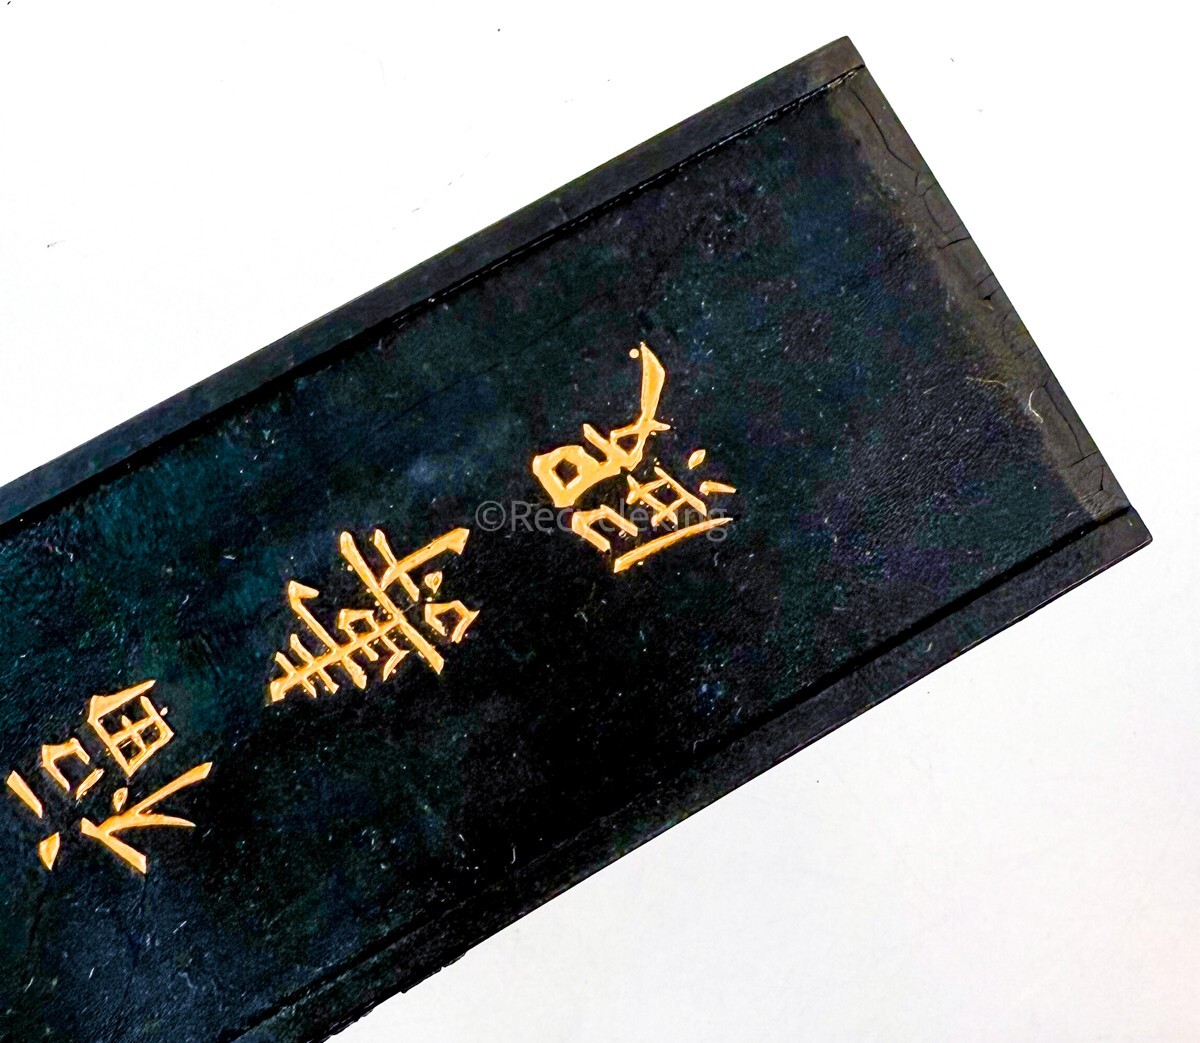 福壽殿
©Recycleking